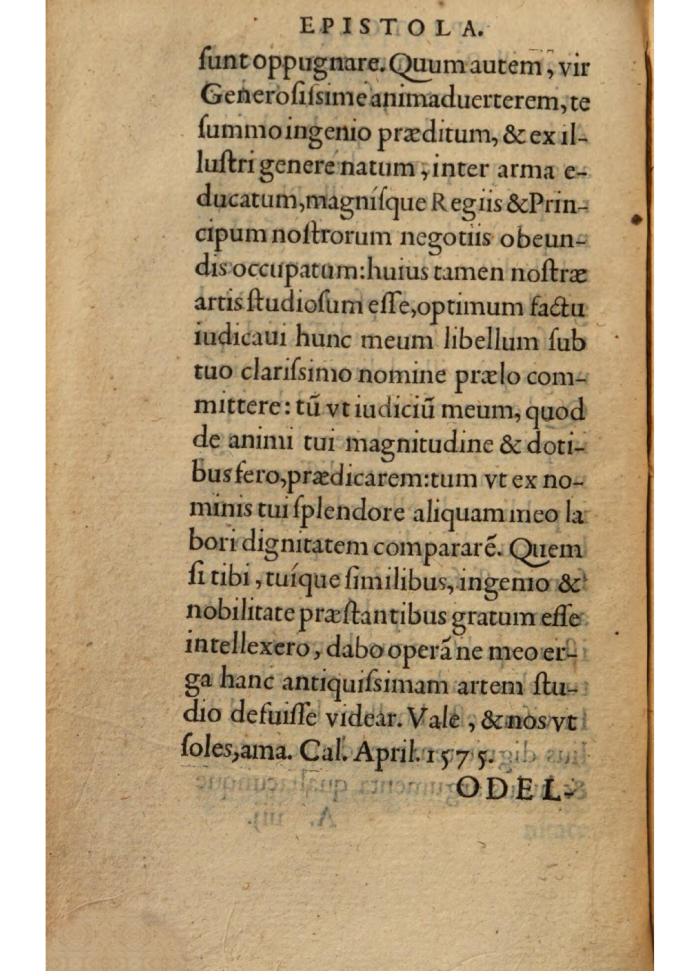 EPISTOLA.
ſunt oppugnare. Quum autem, vir
Generoſiſsime animaduerterem, te
ſummo ingenio præditum, & ex il-
luſtri genere natum, inter arma e-
ducatum, magníſque Regiis & Prin-
cipum noſtrorum negotiis obeun-
dis occupatum: huius tamen noſtræ
artis ſtudioſum eſſe, optimum factu
iudicaui hunc meum libellum ſub
tuo clariſsimo nomine prælo com-
mittere: tũ vt iudiciũ meum, quod
de animi tui magnitudine & doti-
bus fero, prædicarem: tum vt ex no-
minis tui ſplendore aliquam meo la
bori dignitatem compararẽ. Quem
ſi tibi, tuíque ſimilibus, ingenio &
nobilitate præſtantibus gratum eſſe
intellexero, dabo operã ne meo er-
ga hanc antiquiſsimam artem ſtu-
dio defuiſſe videar. Vale, & nos vt
ſoles, ama. Cal. April. 1575.
ODEL-